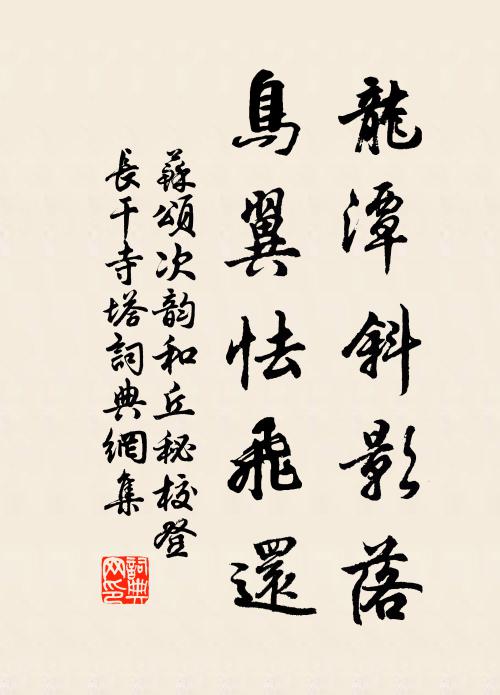 龍潭斜影落
鳥翼怯飛還
蘇頌次韵和丘秘校登
長干寺塔詞典網集
詞典网印